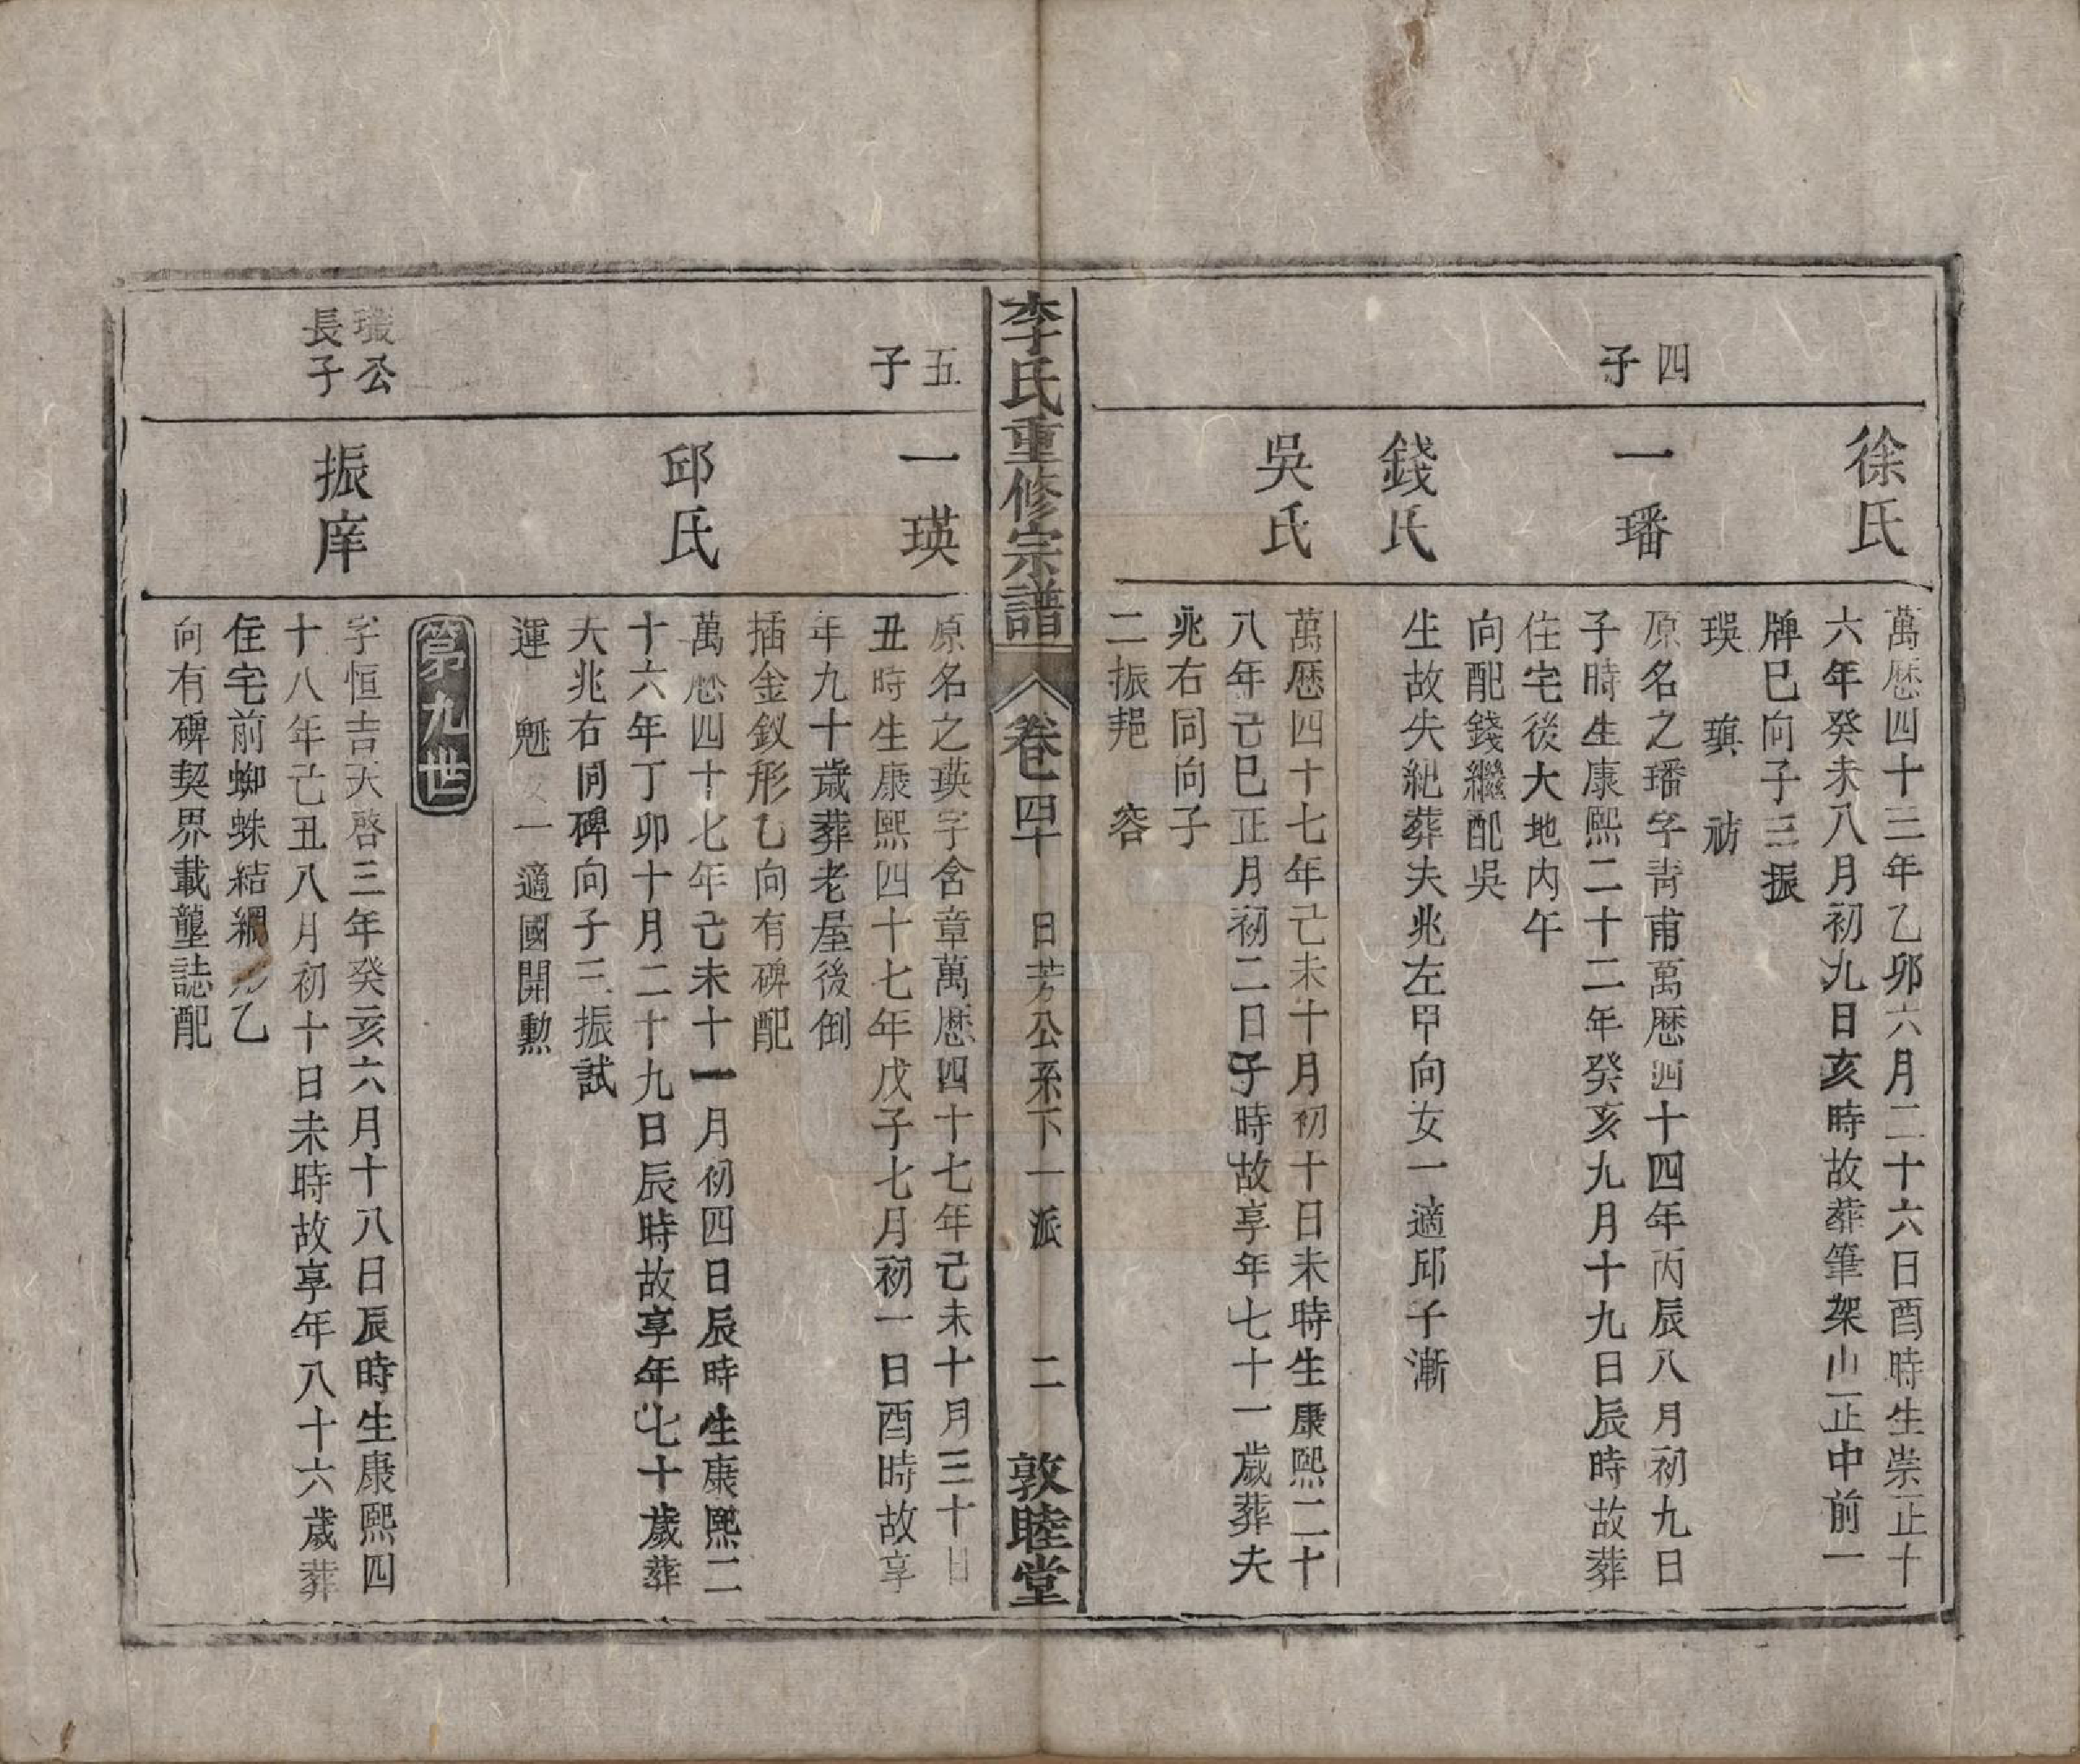 徐氏
萬歷四十三年乙卯六月二十六日酉時生崇正十
六年癸未八月初九日亥時故葬筆架山正中前一
牌巳向子三振
瑛　璜　祊
四
子
一璠
原名之璠字青甫萬歷四十四年丙辰八月初九日
子時生康熙二十二年癸亥九月十九日辰時故葬
住宅後大地内午
向配錢繼配吳
錢氏
生故失紀葬夫兆左甲向女一適邱子漸
吳氏
萬歷四十七年己未十月初十日未時生康熙二十
八年己巳正月初二日子時故享年七十一歲葬夫
兆右同向子
二振㧕　容
李氏重修宗譜
卷四十
日芳公系下一派
二
敦睦堂
五
子
一瑛
原名之瑛字含章萬歷四十七年己未十月三十日
丑時生康熙四十七年戊子七月初一日酉時故享
年九十歲葬老屋後倒
插金釵形乙向有碑配
邱氏
萬歷四十七年己未十一月初四日辰時生康熙二
十六年丁卯十月二十九日辰時故享年七十歲葬
夫兆右同碑向子三振試
運　魁女一適國開勳
第九世
公
長子
振庠
字恒吉天啓三年癸亥六月十八日辰時生康熙四
十八年己丑八月初十日未時故享年八十六歲葬
住宅前蜘蛛結網形乙
向有碑契界載塋誌配